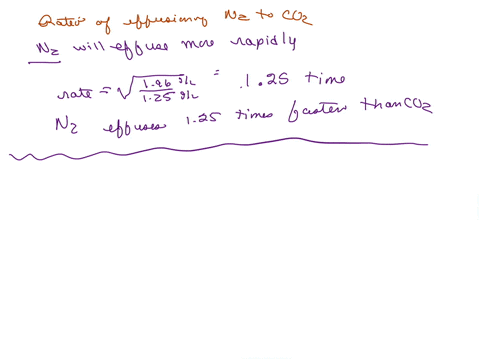 Ratio of effusion of N2 to CO2
N2 will effuse more rapidly
rate = √(1.96 g/L / 1.25 g/L) = 1.25 time
N2 effuses 1.25 times faster than CO2